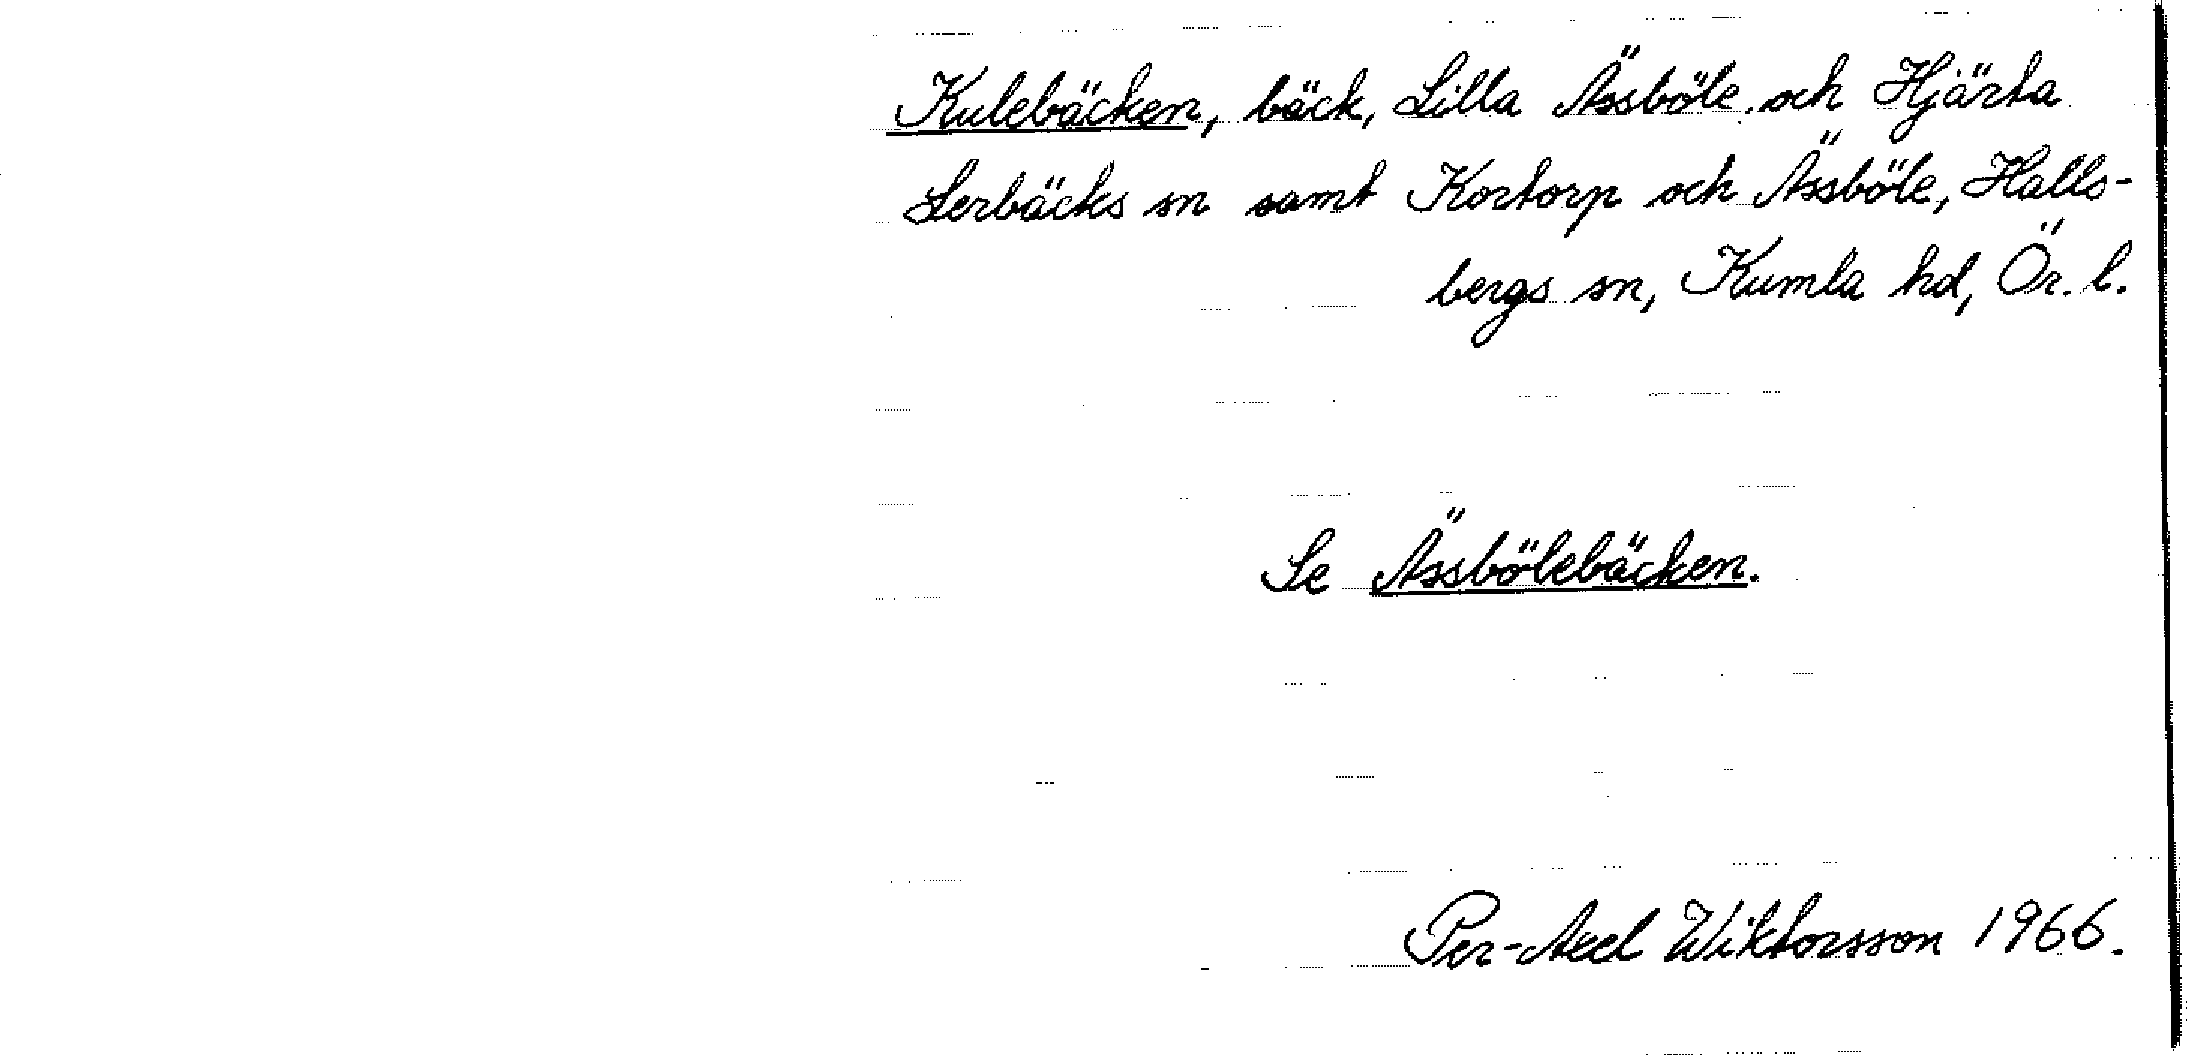 Kulebäcken, bäck, Lilla Ässböle och Hjärta
Lerbäcks sn samt Kortorp och Ässböle, Halls-
bergs sn, Kumla hd, Ör. l.
Se Ässbölebäcken.
Per-Axel Wiktorsson 1966.